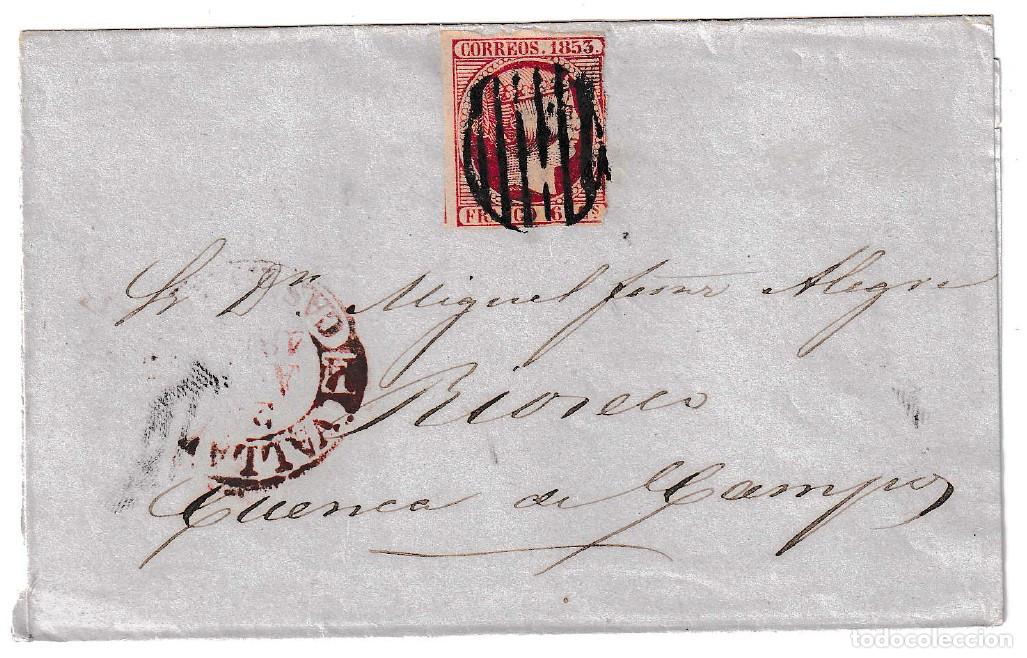 CORREOS. 1853.
FRANCO 6 Cs
Sr Dn Miguel Alegre
Rioseco
Cuenca de Campos
VALLA
CAS
todocoleccion